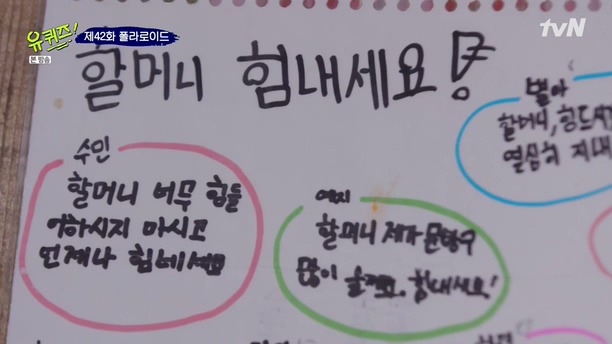 유퀴즈!
본방송
제42화 폴라로이드
tvN
할머니 힘내세요!
수민
할머니 너무 힘들
어하시지 마시고
언제나 힘내세요
예지
할머니 제가 문방구
많이 올게요. 힘내세요!
별아
할머니, 힘드시
열심히 지내